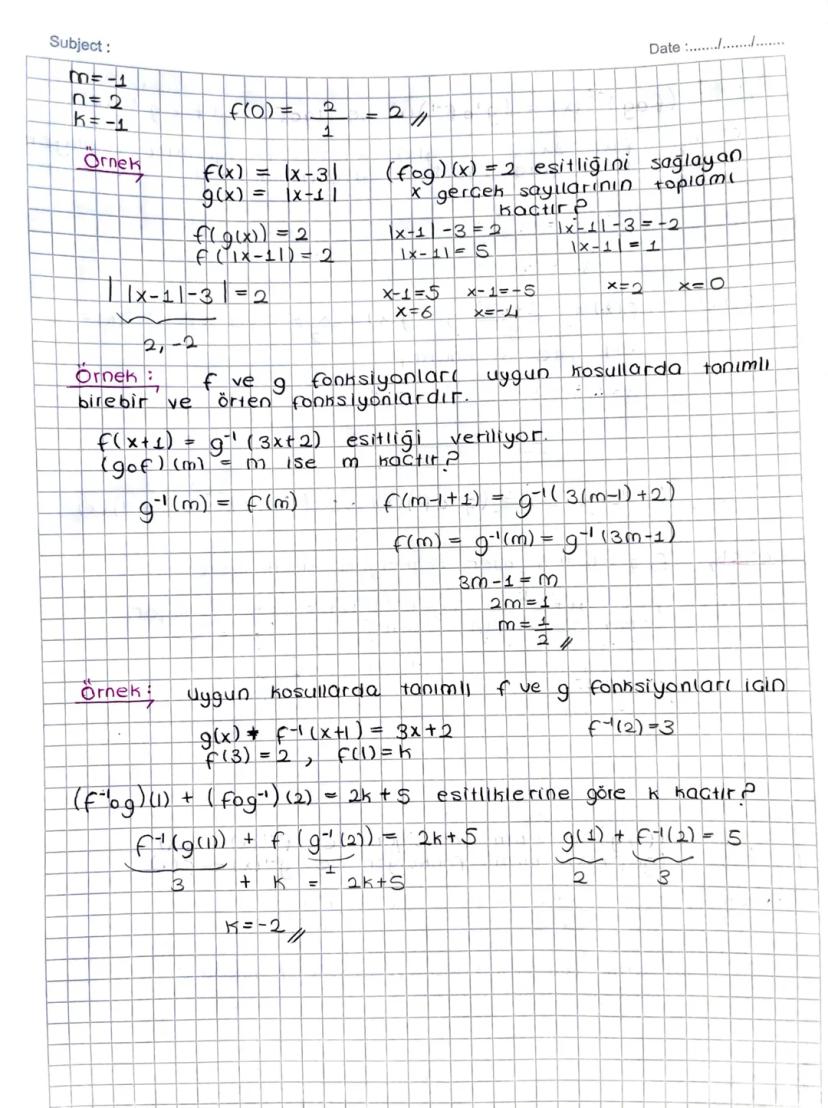 Subject :
Date :......./......../.......
m=-1
n=2
k=-1
f(0) = 2/1 = 2 //
Örnek
f(x) = |x-3|
g(x) = |x-1|
(fog)(x) = 2 esitliğini sağlayan
x gercek sayılarının toplamı
kactır?
f(g(x)) = 2
f(|x-1|) = 2
|x-1|-3=2
|x-1|=5
|x-1|-3=-2
|x-1|=1
||x-1|-3|=2
2, -2
x-1=5
x=6
x-1=-5
x=-4
x=2
x=0
Örnek :
f ve g fonksiyonları uygun kosullarda tanımlı
birebir ve örten fonksiyonlardır.
f(x+1) = g⁻¹(3x+2) esitliği veriliyor.
(gof)(m) = m ise m kactır?
g⁻¹(m) = f(m)
f(m-1+1) = g⁻¹(3(m-1)+2)
f(m) = g⁻¹(m) = g⁻¹(3m-1)
3m-1=m
2m=1
m=1/2 //
Örnek ;
uygun kosullarda tanımlı f ve g fonksiyonları icin
g(x) + f⁻¹(x+1) = 3x+2
f⁻¹(2)=3
f(3) = 2 , f(1)=k
(f⁻¹og)(1) + (fog⁻¹)(2) = 2k+5 esitliklerine göre k kactır?
f⁻¹(g(1)) + f(g⁻¹(2)) = 2k+5
1
3 + k = 2k+5
g(1) + f⁻¹(2) = 5
2 3
k=-2 //